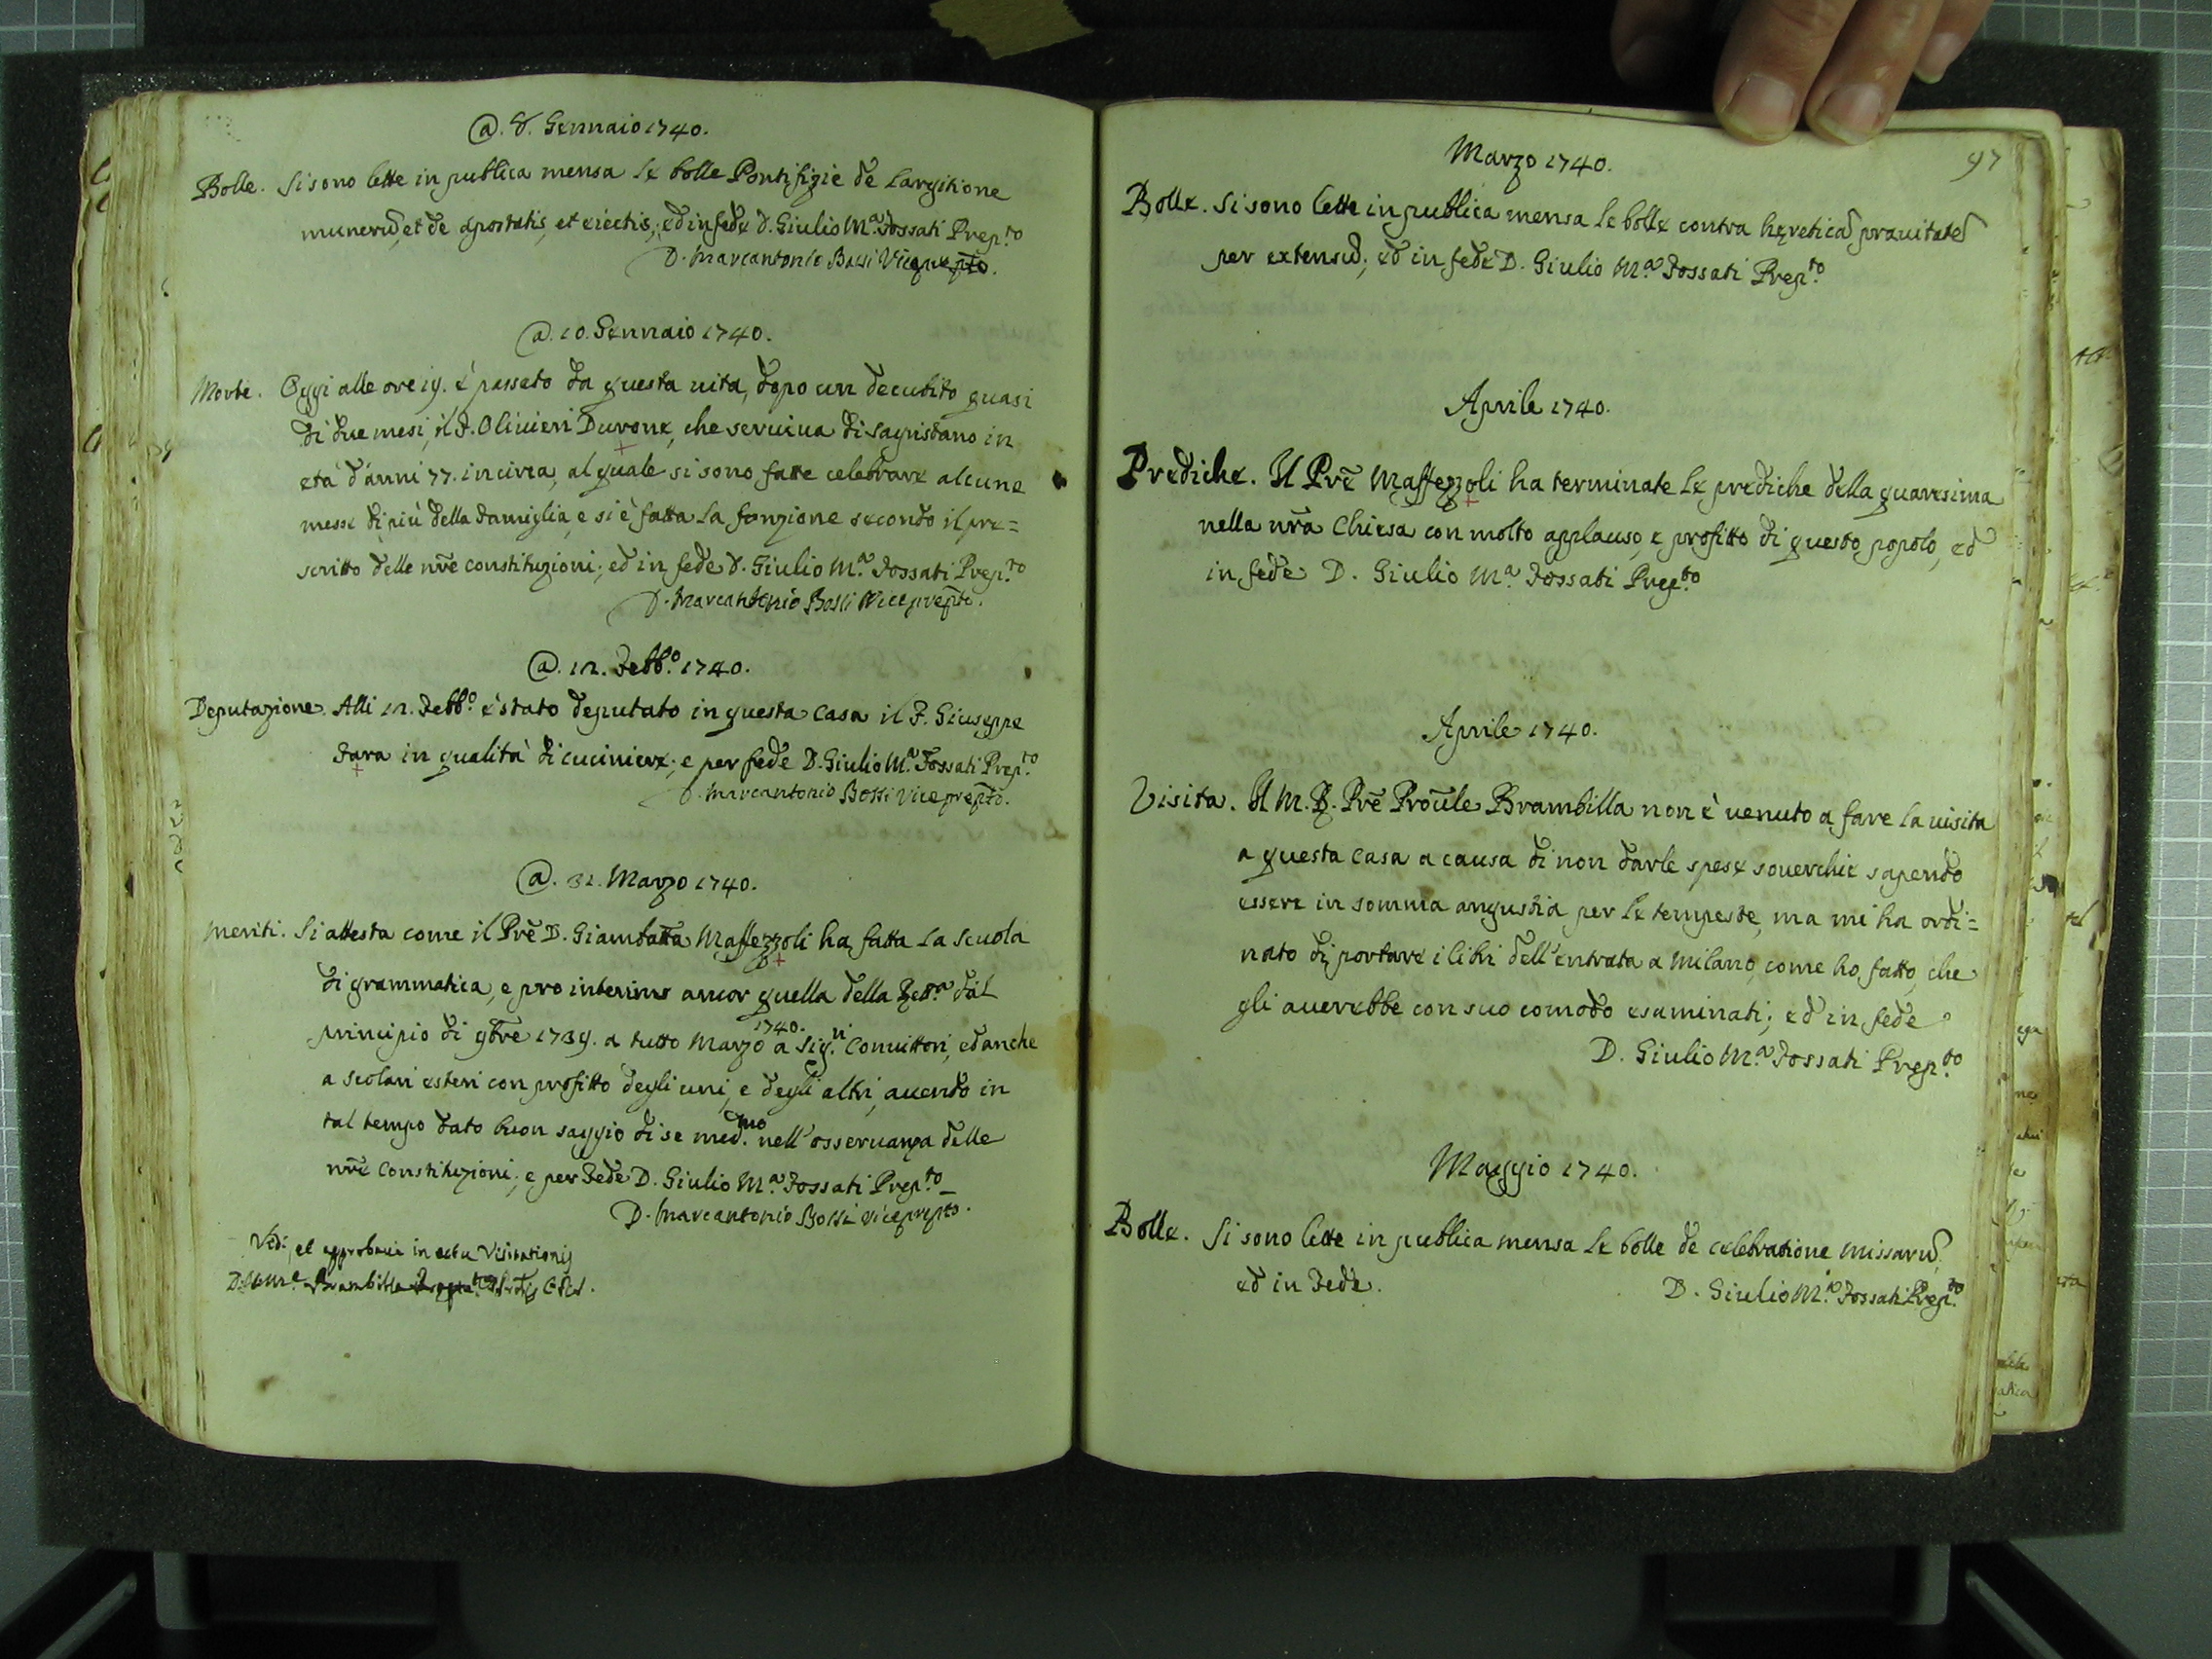 @. 8. Gennaio 1740.
Bolle. Si sono lette in publica mensa le bolle Pontifizie de Largitione
munerũ, et de apostatis, et eiectis; ed in fede D. Giulio M.ª Fossati Prep.to
D. Marcantonio Bossi Viceprep̃to.
@. 10. Gennaio 1740.
Morte. Oggi alle ore 19. è passato da questa uita, dopo un decubito quasi
di due mesi, il F. Oliuieri Durone, che seruiua di sagristano in
età d'anni 77. incirca, al quale si sono fatte celebrare alcune
messe di più della famiglia, e si è fatta la fonzione secondo il pre=
scritto delle nr̃e constituzioni; ed in fede D. Giulio M.ª Fossati Prep.to
D. Marcantonio Bossi Viceprep̃to.
@. 12. Febb.º 1740.
Deputazione. Alli 12. Febb.º è stato deputato in questa casa il F. Giuseppe
Fara in qualità di cuciniere; e per fede D. Giulio M.ª Fossati Prep.to
D. Marcantonio Bossi Viceprep̃to.
@. 31. Marzo 1740.
Meriti. Si attesta come il Prẽ D. Giambatt̃a Maffezzoli ha fatta la scuola
di grammatica, e pro interim ancor quella della Rett.ª dal
principio di 9bre 1739. a tutto Marzo 1740. a Sig.ri Conuittori, ed anche
a scolari esteri con profitto degli uni, e degli altri, auendo in
tal tempo dato buon saggio di se med.mo nell'osseruanza delle
nr̃e Constituzioni; e per Fede D. Giulio M.ª Fossati Prep.to
D. Marcantonio Bossi Viceprepto.
Vidi, et approbaui in actu Visitationis
Brambilla
97
Marzo 1740.
Bolle. Si sono lette in publica mensa le bolle contra hęreticã prauitatẽ
per extensũ; ed in fede D. Giulio M.ª Fossati Prep.to
Aprile 1740.
Prediche. Il Prẽ Maffezzoli ha terminate le prediche della quaresima
nella nr̃a Chiesa con molto applauso, e profitto di questo popolo, ed
in fede D. Giulio M.ª Fossati Prep.to
Aprile 1740.
Visita. Il M. R. Prẽ Pro͂ule Brambilla non è uenuto a fare la uisita
a questa casa a causa di non darle spese souerchie sapendo
essere in somma angustia per le tempeste, ma mi ha ordi=
nato di portare i libri dell'entrata a Milano, come ho fatto, che
gli auerebbe con suo comodo esaminati; ed in fede
D. Giulio M.ª Fossati Prep.to
Maggio 1740.
Bolle. Si sono lette in publica mensa le bolle de celebratione missarũ;
ed in Fede. D. Giulio M.ª Fossati Prep.to